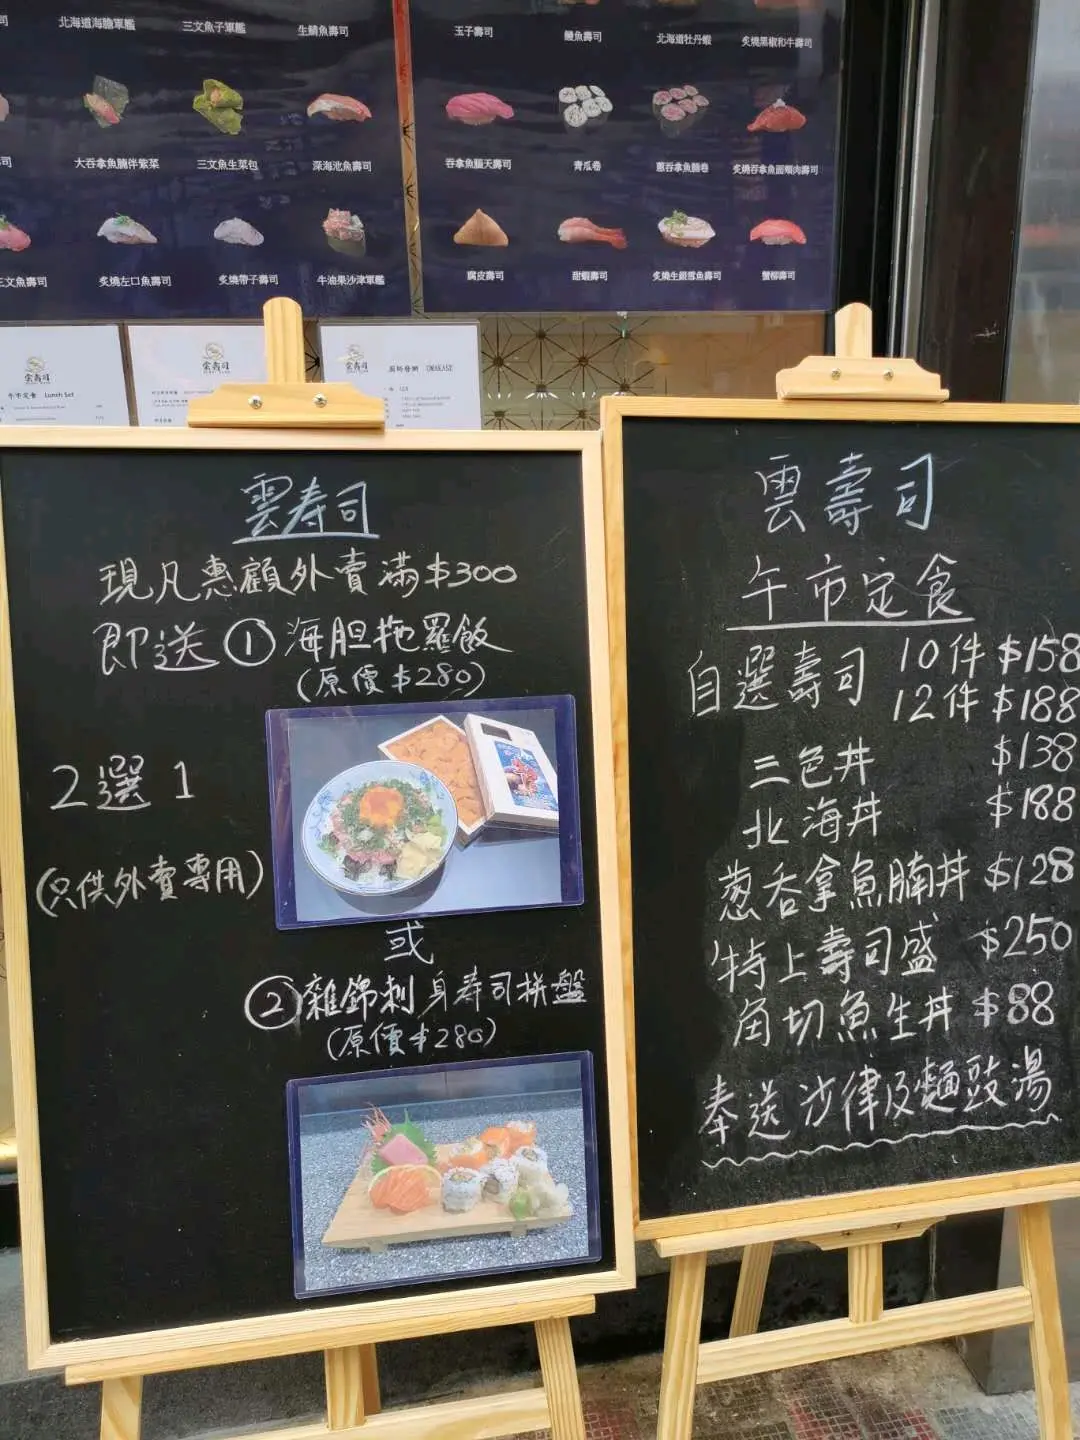 北海道海膽軍艦
三文魚子軍艦
生鯖魚壽司
玉子壽司
鰻魚壽司
北海道牡丹蝦
炙燒黑椒和牛壽司
大吞拿魚腩伴紫菜
三文魚生菜包
深海池魚壽司
吞拿魚腦天壽司
青瓜卷
蔥吞拿魚腩卷
炙燒吞拿魚面頰肉壽司
三文魚壽司
炙燒左口魚壽司
炙燒帶子壽司
牛油果沙津軍艦
腐皮壽司
甜蝦壽司
炙燒生銀雪魚壽司
蟹柳壽司
雲壽司
午市定食 Lunch Set
雲壽司
雲壽司
廚師發辦 OMAKASE
雲寿司
現凡惠顧外賣滿$300
即送①海胆拖羅飯
(原價$280)
2選1
(只供外賣專用)
或
②雜錦刺身寿司拼盤
(原價$280)
雲壽司
午市定食
自選壽司 10件 $158
12件 $188
三色丼 $138
北海丼 $188
葱吞拿魚腩丼 $128
特上壽司盛 $250
角切魚生丼 $88
奉送沙律及麵豉湯